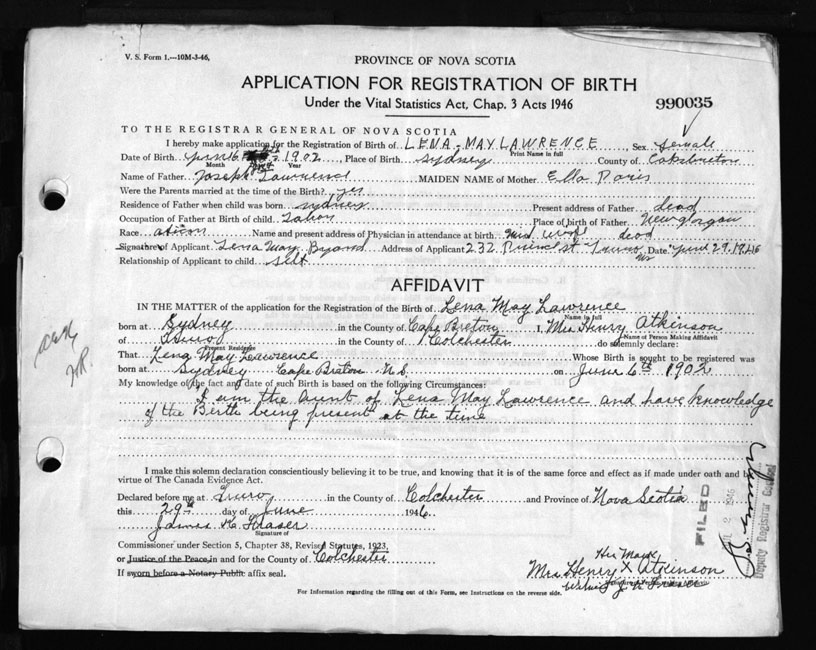 V. S. Form 1.—10M-3-46,
PROVINCE OF NOVA SCOTIA
APPLICATION FOR REGISTRATION OF BIRTH
Under the Vital Statistics Act, Chap. 3 Acts 1946
990035
TO THE REGISTRAR GENERAL OF NOVA SCOTIA
I hereby make application for the Registration of Birth of LENA - MAY LAWRENCE Sex female
Print Name in full
Date of Birth 1902 Place of Birth Sydney County of
Month Day Year
Name of Father Joseph Lawrence MAIDEN NAME of Mother Ella
Were the Parents married at time of the Birth? yes
Residence of Father when child was born Sydney Present address of Father dead
Occupation of Father at Birth of child Labor Place of Birth of Father
Race Name and present address of Physician in attendance at birth dead
Signature of Applicant Lena May Address of Applicant 232 St Truro Date June 29, 1946
NS
Relationship of Applicant to child self
AFFIDAVIT
IN THE MATTER of the application for the Registration of the Birth of Lena May Lawrence
Name in full
born at Sydney in the County of Cape Breton I, Mrs Henry Atkinson
Name of Person Making Affidavit
of Truro in the County of Colchester do solemnly declare:
Present Residence
That Lena May Lawrence Whose Birth is sought to be registered was
born at Sydney Cape Breton N S on June 6th 1902
My knowledge of the fact and date of such Birth is based on the following Circumstances:
I am the aunt of Lena May Lawrence and have knowledge
of the Birth being present at the time
I make this solemn declaration conscientiously believing it to be true, and knowing that it is of the same force and effect as if made under oath and by
virtue of The Canada Evidence Act.
Declared before me at Truro in the County of Colchester and Province of Nova Scotia
this 29th day of June 1946
James K Fraser
Signature of
Commissioner under Section 5, Chapter 38, Revised Statutes, 1923,
or Justice of the Peace in and for the County of Colchester
If sworn before a Notary Public affix seal.
Her Mark
Mrs Henry X Atkinson
For Information regarding the filling out of this Form, see Instructions on the reverse side.
FILED
Deputy Registrar General